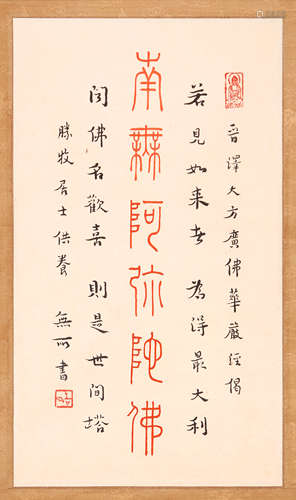 晉譯大方廣佛華嚴經偈
若見如来者 為得最大利
南無阿弥陀佛
聞佛名歡喜 則是世間塔
勝牧居士供養 無所書